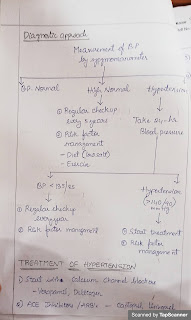 Diagnostic approach
Measurement of B.P
by sphygmomanometer
B.P. Normal
High Normal
Hypertension
① Regular checkup
every 5 years
② Risk factor
management
- Diet (low salt)
- Exercise
Take 24-hr
Blood pressure
BP < 135/85
Hypertension
(>140/90)
mmHg
① Regular checkup
every year
② Risk factor managment
① Start treatment
② Risk factor
management.
TREATMENT OF HYPERTENSION
① Start with Calcium Channel Blockers
- Verapamil, Diltiazem
② ACE Inhibitors / ARBs - Captopril, Lisinopril
Scanned by TapScanner